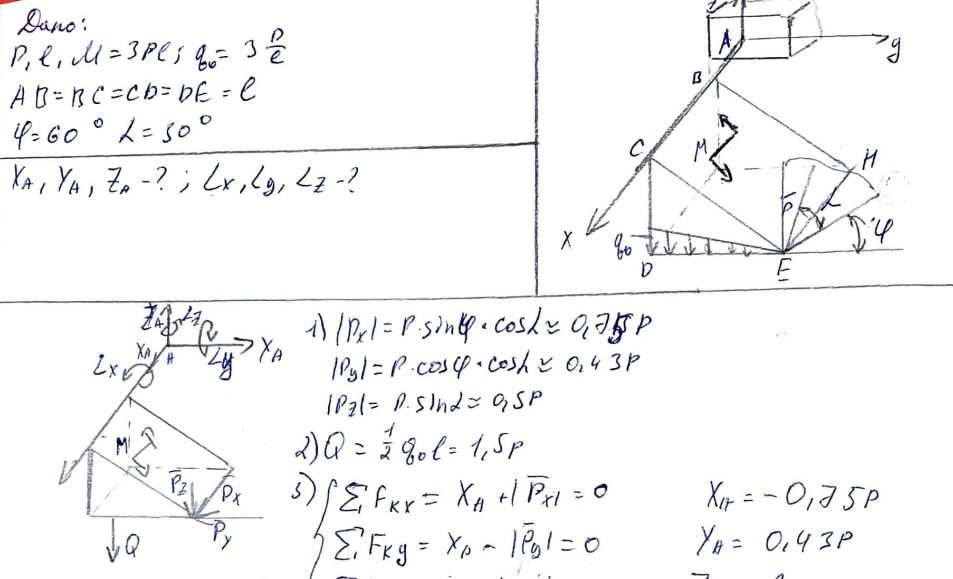 Дано:
P, l, M = 3Pl; q₀ = 3 P/l
AB = BC = CD = DE = l
φ = 60° L = 30°
X_A, Y_A, Z_A - ?; L_x, L_y, L_z - ?
A
y
B
C
M
H
x
P
L
φ
q₀
D
E
Z_A
L_z
X_A
A
L_y
Y_A
L_x
M
P_z
P_x
P_y
Q
1) |P_x| = P · sinφ · cosL ≈ 0,75P
|P_y| = P · cosφ · cosL ≈ 0,43P
|P_z| = P · sinL ≈ 0,5P
2) Q = 1/2 q₀l = 1,5P
3) ΣF_kx = X_A + |P_x| = 0 X_A = -0,75P
ΣF_ky = Y_A - |P_y| = 0 Y_A = 0,43P